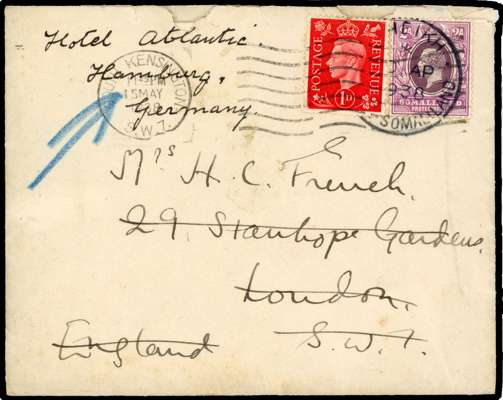 Hotel Atlantic.
Hamburg,
Germany.
KENSINGTON
15 MAY
S.W.7.
POSTAGE
REVENUE
1D
2A
SOMALILAND
AP
SOMALILAND
Mrs H. C. French.
29. Stanhope Gardens.
London.
S.W.7.
England